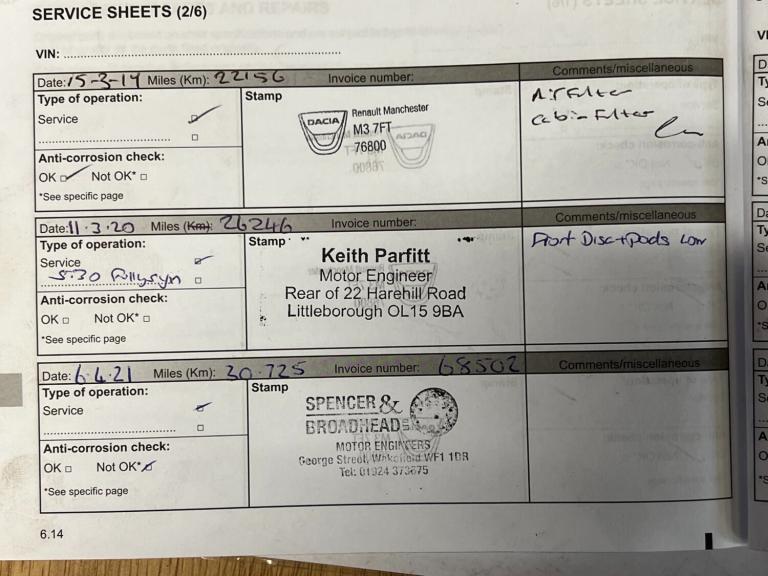 SERVICE SHEETS (2/6)
VIN:
Date: 15-3-19 Miles (Km): 22156 Invoice number: Comments/miscellaneous
Type of operation:
Service
Anti-corrosion check:
OK Not OK*
*See specific page
Stamp
DACIA
Renault Manchester
M3 7FT
76800
Air Filter
Cabin Filter
Date: 11.3.20 Miles (Km): 26246 Invoice number: Comments/miscellaneous
Type of operation:
Service
5.30 Fully syn
Anti-corrosion check:
OK Not OK*
*See specific page
Stamp
Keith Parfitt
Motor Engineer
Rear of 22 Harehill Road
Littleborough OL15 9BA
Front Disc + Pads Low
Date: 6.4.21 Miles (Km): 30.725 Invoice number: 68502 Comments/miscellaneous
Type of operation:
Service
Anti-corrosion check:
OK Not OK*
*See specific page
Stamp
SPENCER &
BROADHEADS
MOTOR ENGINEERS
George Street, Wakefield WF1 1DR
Tel: 01924 373675
6.14